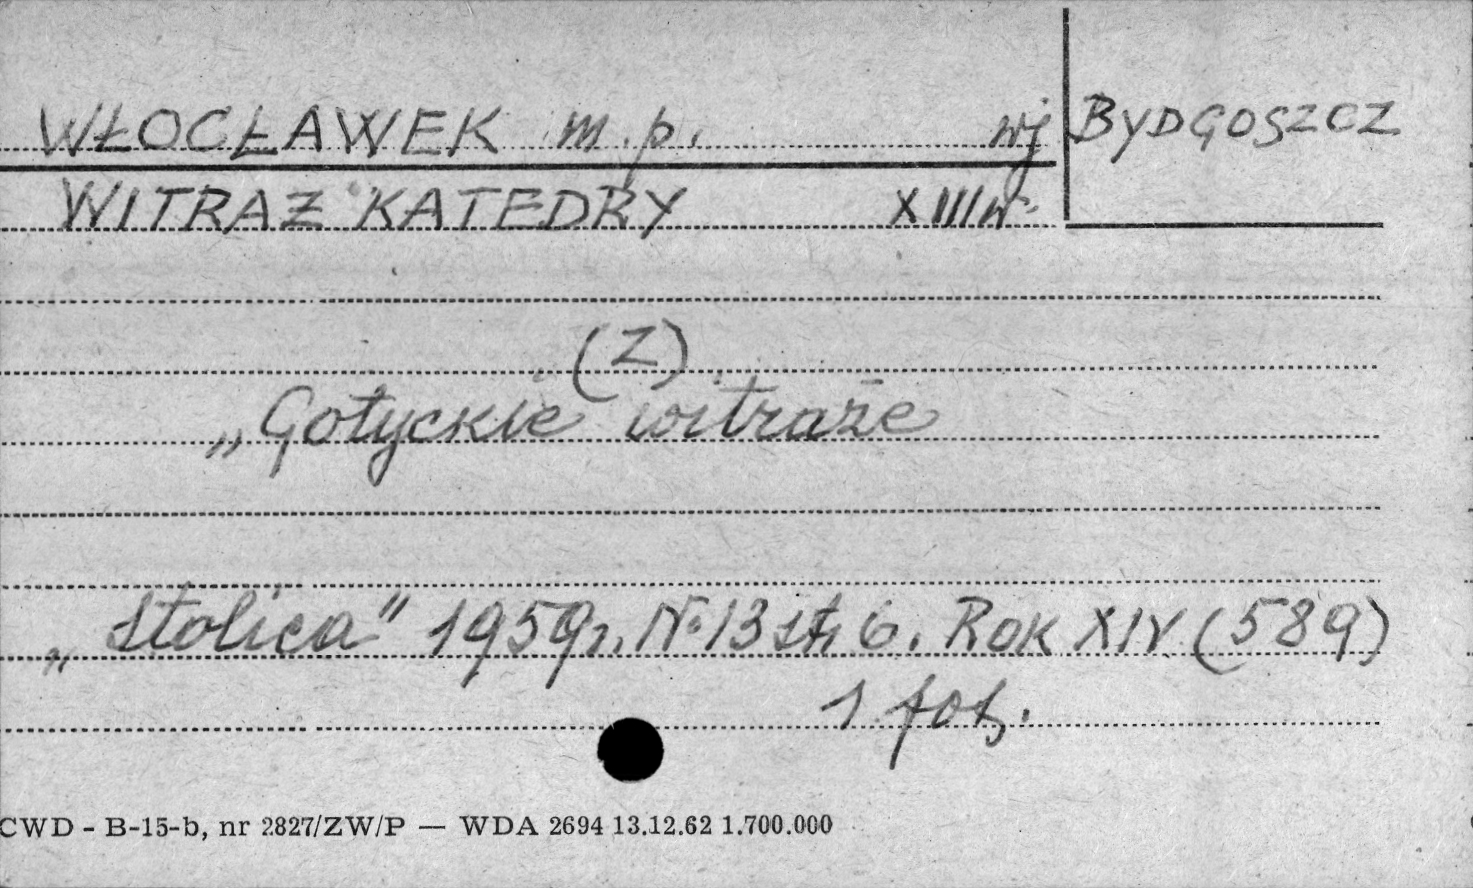 WŁOCŁAWEK m.p. wj BYDGOSZCZ
WITRAŻ KATEDRY XIIIw.
(Z)
„Gotyckie witraże
„Stolica" 1959r. Nr 13 str. 6. Rok XIV (589)
1 fot.
CWD - B-15-b, nr 2827/ZW/P — WDA 2694 13.12.62 1.700.000